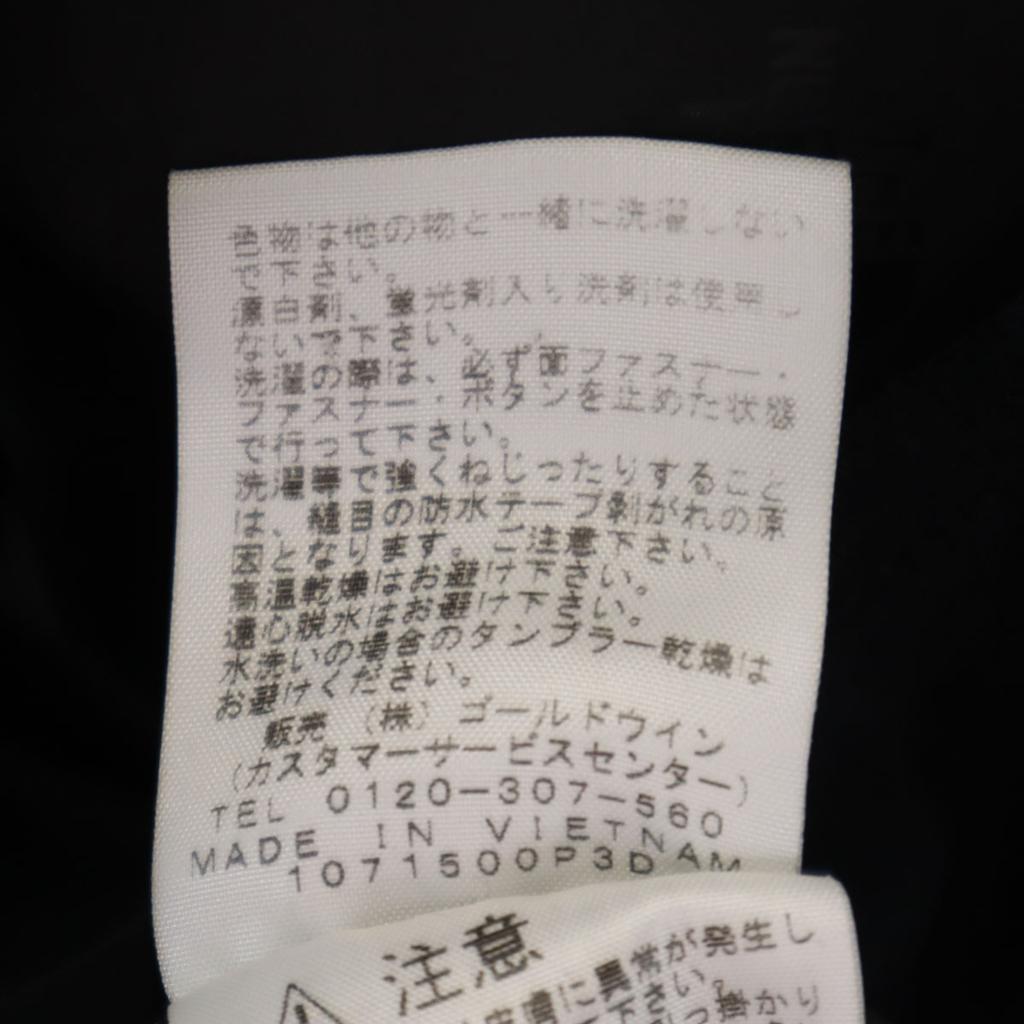 色物は他の物と一緒に洗濯しない
で下さい。
漂白剤、蛍光剤入り洗剤は使用し
ないで下さい。
洗濯の際は、必ず面ファスナー・
ファスナー・ボタンを止めた状態
で行って下さい。
洗濯等で強くねじったりすること
は、縫目の防水テープ剥がれの原
因となります。ご注意下さい。
高温乾燥はお避け下さい。
遠心脱水はお避け下さい。
水洗いの場合のタンブラー乾燥は
お避けください。
販売 (株)ゴールドウイン
(カスタマーサービスセンター)
TEL 0120-307-560
MADE IN VIETNAM
1071500P3D
注意
皮膚に異常が発生し
下さい。
っ掛かり